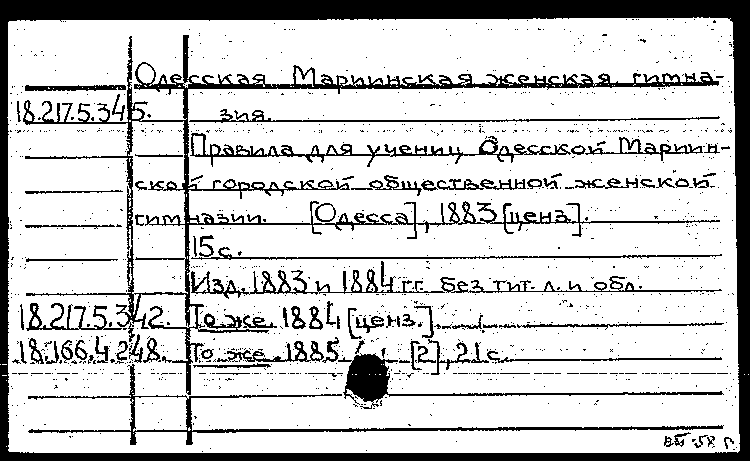 Одесская Мариинская женская гимна-
18.217.5.345. зия.
Правила для учениц Одесской Мариин-
ской городской общественной женской
гимназии. [Одесса], 1883 [ценз.].
15 с.
Изд. 1883 и 1884 г.г. без тит. л. и обл.
18.217.5.342. То же. 1884 [ценз.].
18.166.4.248. То же. 1885 [2], 21 с.